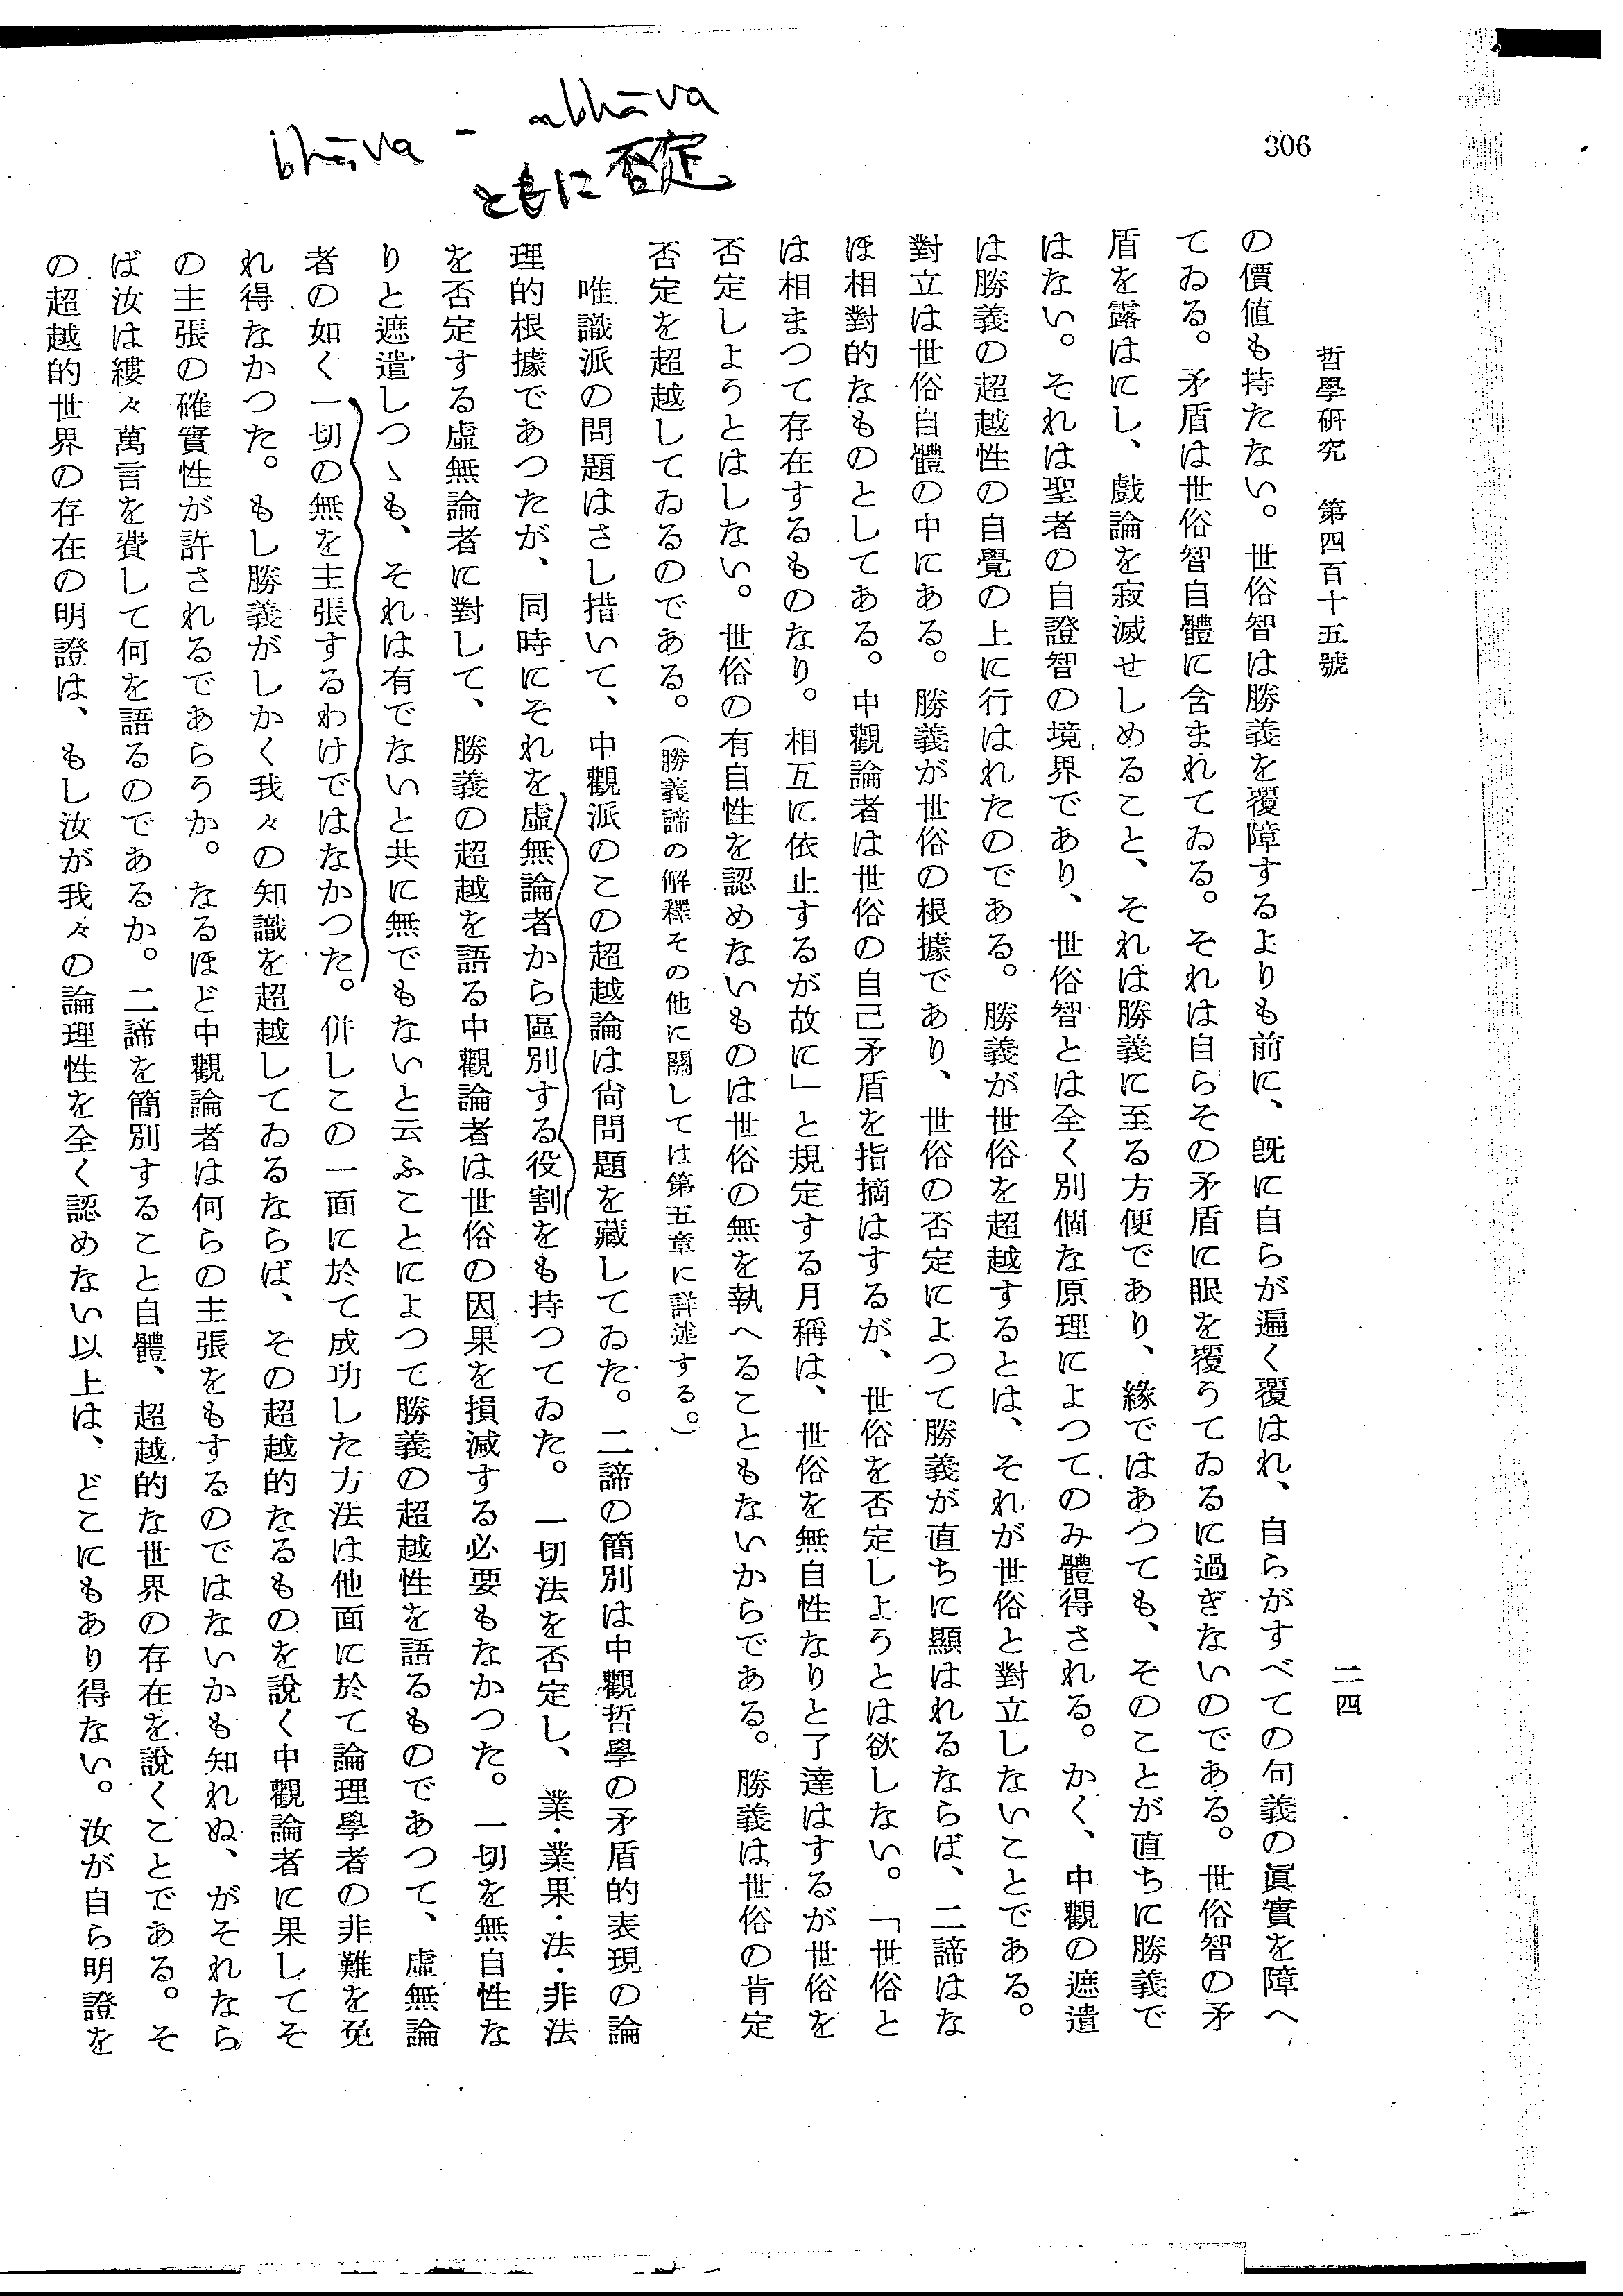 306
bhāva - abhāva
ともに否定
哲學硏究　第四百十五號
二四
の價値も持たない。世俗智は勝義を覆障するよりも前に、既に自らが遍く覆はれ、自らがすべての句義の眞實を障へ
てゐる。矛盾は世俗智自體に含まれてゐる。それは自らその矛盾に眼を覆うてゐるに過ぎないのである。世俗智の矛
盾を露はにし、戲論を寂滅せしめること、それは勝義に至る方便であり、緣ではあつても、そのことが直ちに勝義で
はない。それは聖者の自證智の境界であり、世俗智とは全く別個な原理によつてのみ體得される。かく、中觀の遮遣
は勝義の超越性の自覺の上に行はれたのである。勝義が世俗を超越するとは、それが世俗と對立しないことである。
對立は世俗自體の中にある。勝義が世俗の根據であり、世俗の否定によつて勝義が直ちに顯はれるならば、二諦はな
ほ相對的なものとしてある。中觀論者は世俗の自己矛盾を指摘はするが、世俗を否定しようとは欲しない。「世俗と
は相まつて存在するものなり。相互に依止するが故に」と規定する月稱は、世俗を無自性なりと了達はするが世俗を
否定しようとはしない。世俗の有自性を認めないものは世俗の無を執へることもないからである。勝義は世俗の肯定
否定を超越してゐるのである。（勝義諦の解釋その他に關しては第五章に詳述する。）
唯識派の問題はさし措いて、中觀派のこの超越論は尙問題を藏してゐた。二諦の簡別は中觀哲學の矛盾的表現の論
理的根據であつたが、同時にそれを虛無論者から區別する役割をも持つてゐた。一切法を否定し、業・業果・法・非法
を否定する虛無論者に對して、勝義の超越を語る中觀論者は世俗の因果を損減する必要もなかつた。一切を無自性な
りと遮遣しつゝも、それは有でないと共に無でもないと云ふことによつて勝義の超越性を語るものであつて、虛無論
者の如く一切の無を主張するわけではなかつた。併しこの一面に於て成功した方法は他面に於て論理學者の非難を免
れ得なかつた。もし勝義がしかく我々の知識を超越してゐるならば、その超越的なるものを說く中觀論者に果してそ
の主張の確實性が許されるであらうか。なるほど中觀論者は何らの主張をもするのではないかも知れぬ、がそれなら
ば汝は縷々萬言を費して何を語るのであるか。二諦を簡別すること自體、超越的な世界の存在を說くことである。そ
の超越的世界の存在の明證は、もし汝が我々の論理性を全く認めない以上は、どこにもあり得ない。汝が自ら明證を